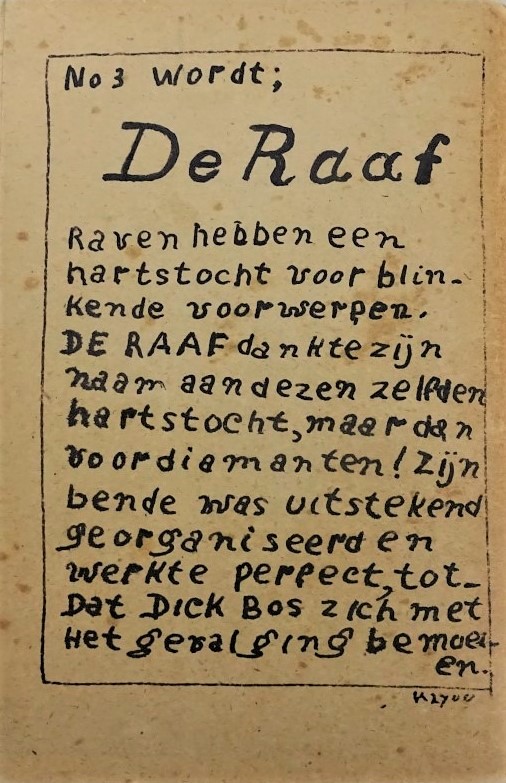 No 3 wordt;
De Raaf
Raven hebben een
hartstocht voor blin-
kende voorwerpen.
DE RAAF dankte zijn
naam aan dezen zelfden
hartstocht, maar dan
voor diamanten! Zijn
bende was uitstekend
georganiseerd en
werkte perfect, tot-
Dat DICK BOS zich met
Het geval ging bemoei-
en.